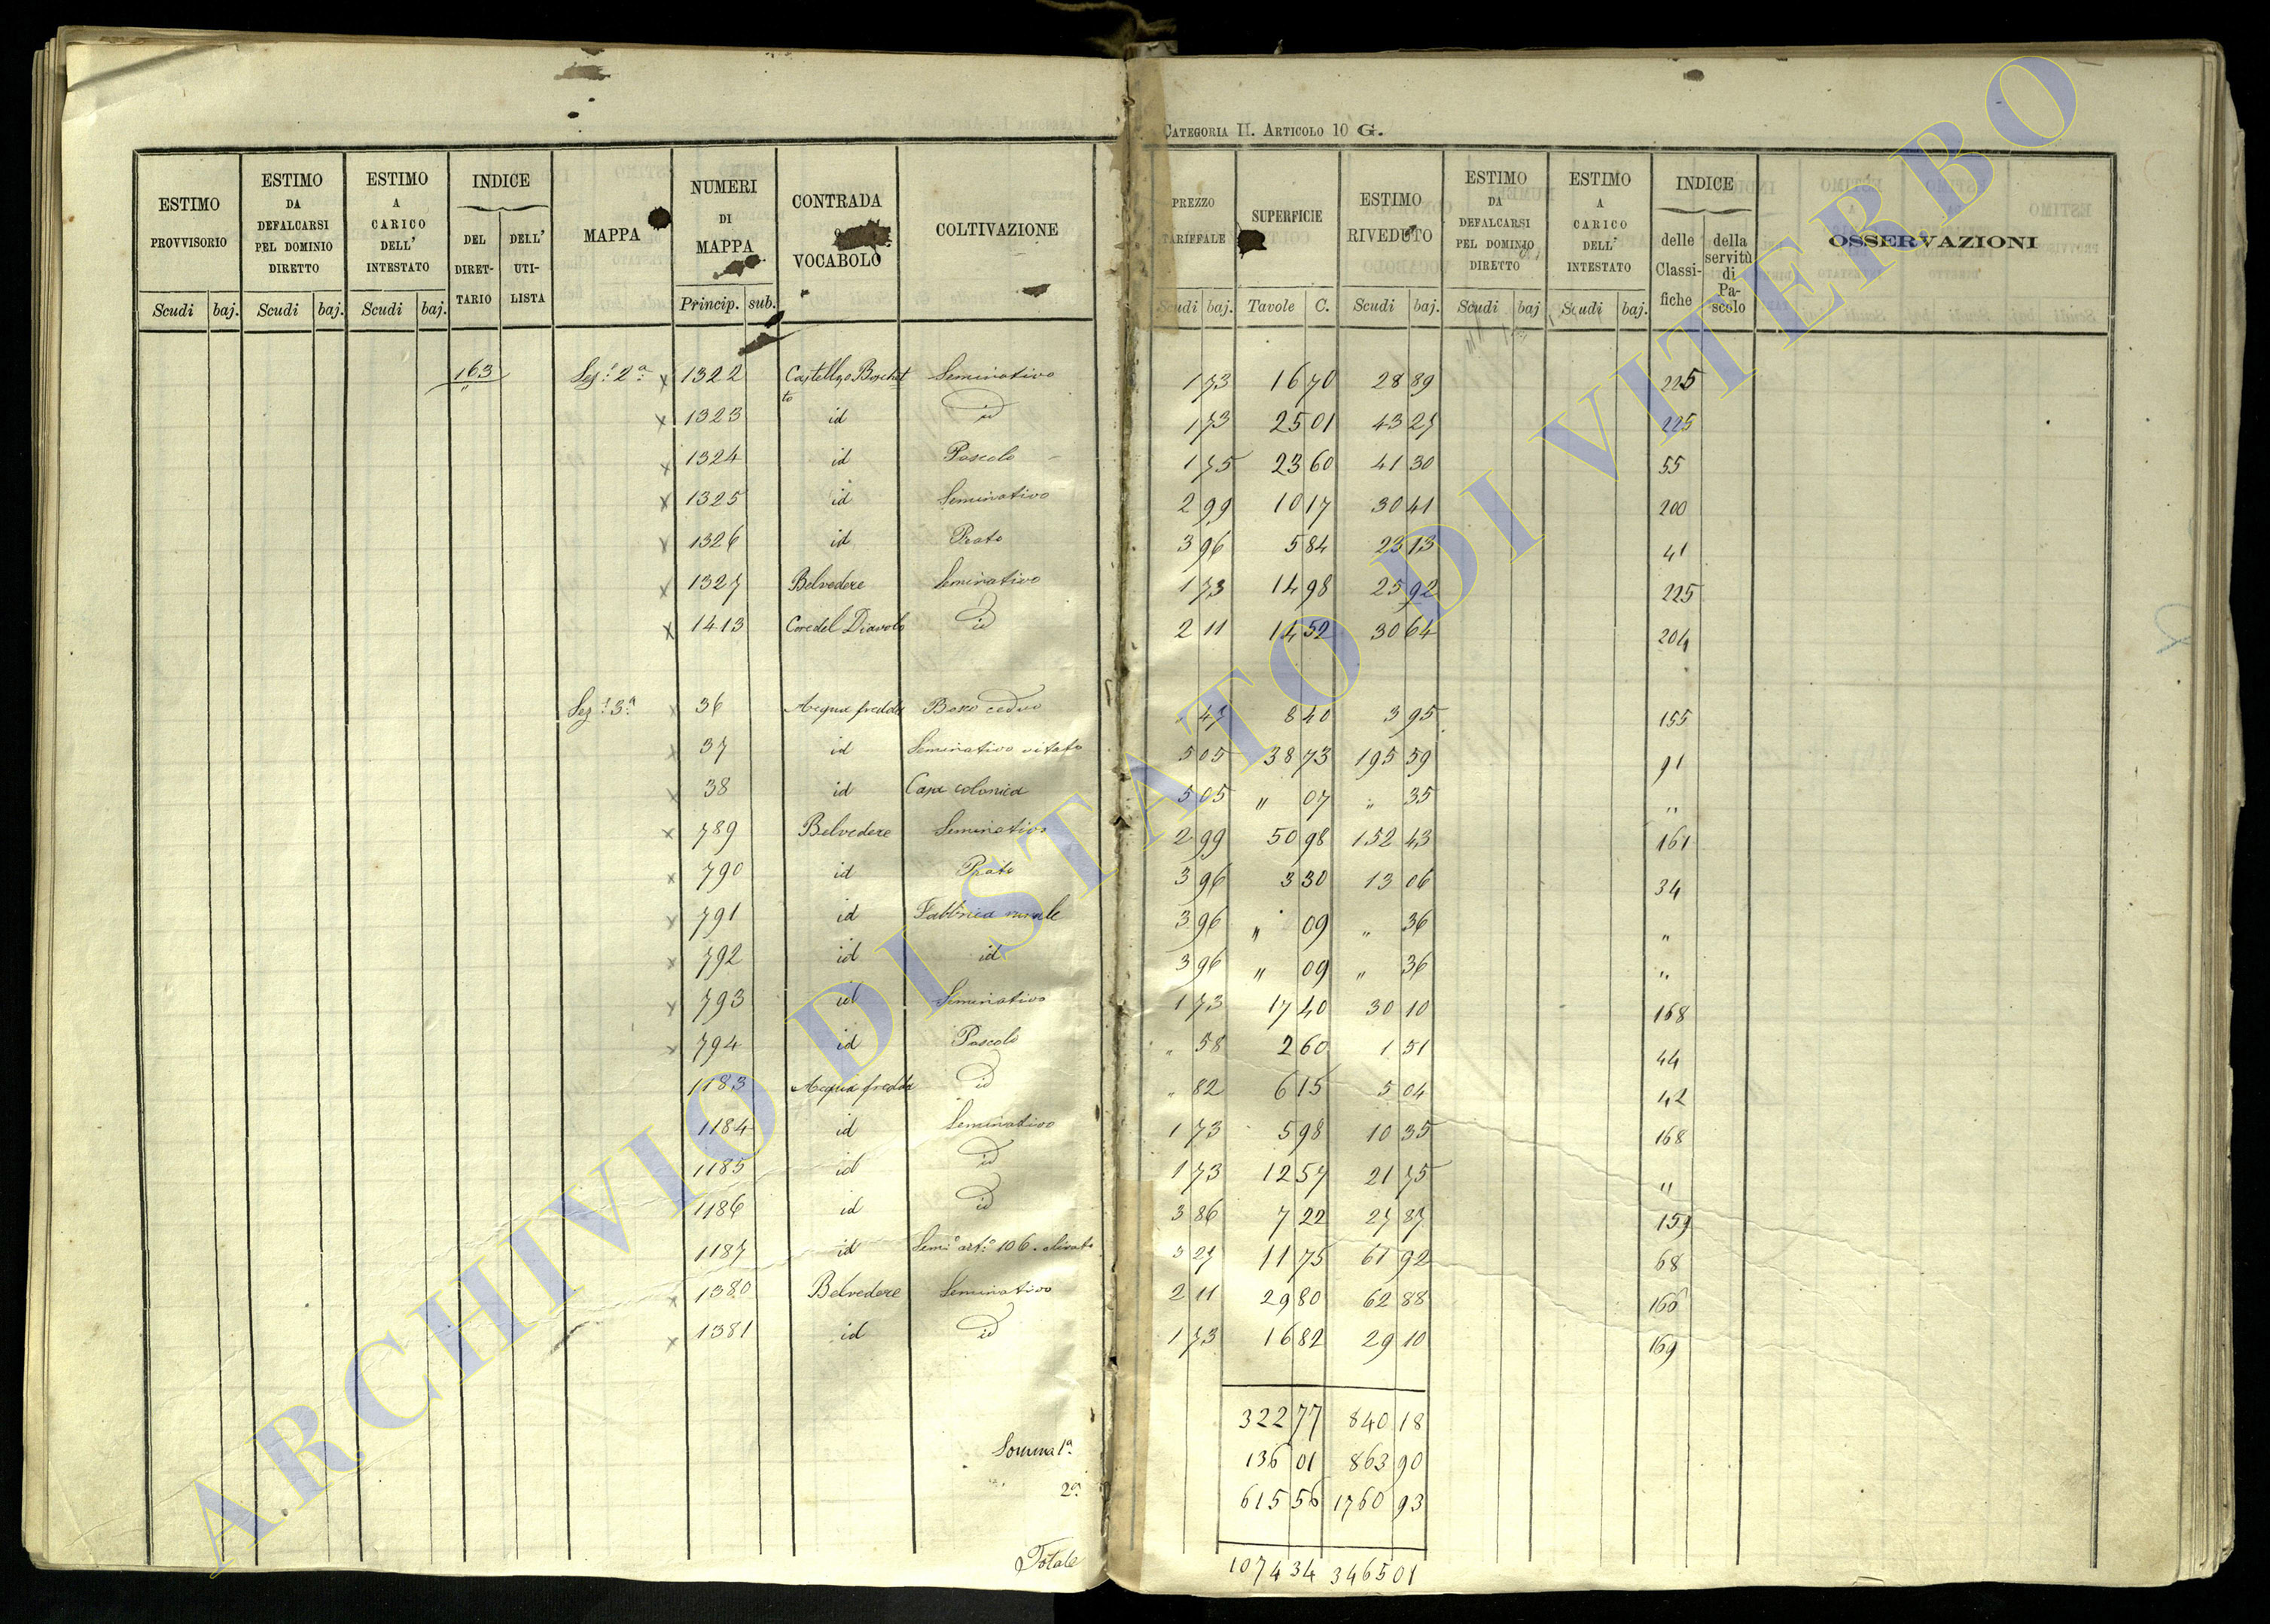 CATEGORIA II. ARTICOLO 10 G.
ESTIMO PROVVISORIO Scudi baj.
ESTIMO DA DEFALCARSI PEL DOMINIO DIRETTO Scudi baj.
ESTIMO A CARICO DELL' INTESTATO Scudi baj.
INDICE DEL DIRET-TARIO DELL' UTI-LISTA
MAPPA
NUMERI DI MAPPA Princip. sub.
CONTRADA VOCABOLO
COLTIVAZIONE
PREZZO TARIFFALE Scudi baj.
SUPERFICIE Tavole C.
ESTIMO RIVEDUTO Scudi baj.
ESTIMO DA DEFALCARSI PEL DOMINIO DIRETTO Scudi baj
ESTIMO A CARICO DELL' INTESTATO Scudi baj.
INDICE delle Classi-fiche della servitù di Pa-scolo
OSSERVAZIONI
163 Sez.e 2a x 1322 Castellzo Boschet to Seminativo 1 73 16 70 28 89 225
x 1323 id id 1 73 25 01 43 27 225
x 1324 id Pascolo 1 75 23 60 41 30 55
x 1325 id Seminativo 2 99 10 17 30 41 200
x 1326 id Prato 3 96 5 84 23 13 41
x 1327 Belvedere Seminativo 1 73 14 98 25 92 225
x 1413 Cove del Diavolo id 2 11 14 52 30 64 204
Sez.e 3a x 36 Acqua fredda Bosco ceduo " 47 8 40 3 95 155
x 37 id Seminativo vitato 5 05 38 73 195 59 91
x 38 id Casa colonica 5 05 " 07 " 35 "
x 789 Belvedere Seminativo 2 99 50 98 152 43 161
x 790 id Prato 3 96 3 30 13 06 34
x 791 id Fabbrica rurale 3 96 " 09 " 36 "
x 792 id id 3 96 " 09 " 36 "
x 793 id Seminativo 1 73 17 40 30 10 168
x 794 id Pascolo " 58 2 60 1 51 44
1183 Acqua fredda id " 82 6 15 5 04 42
1184 id Seminativo 1 73 5 98 10 35 168
1185 id id 1 73 12 57 21 75 "
1186 id id 3 86 7 22 27 87 159
1187 id Sem.o art.o 106. olivato 27 11 75 61 92 68
x 1380 Belvedere Seminativo 2 11 29 80 62 88 166
x 1381 id id 1 73 16 82 29 10 169
322 77 840 18
Somma 1a 136 01 863 90
" 2a 615 56 1760 93
Totale 1074 34 3465 01
ARCHIVIO DI STATO DI VITERBO